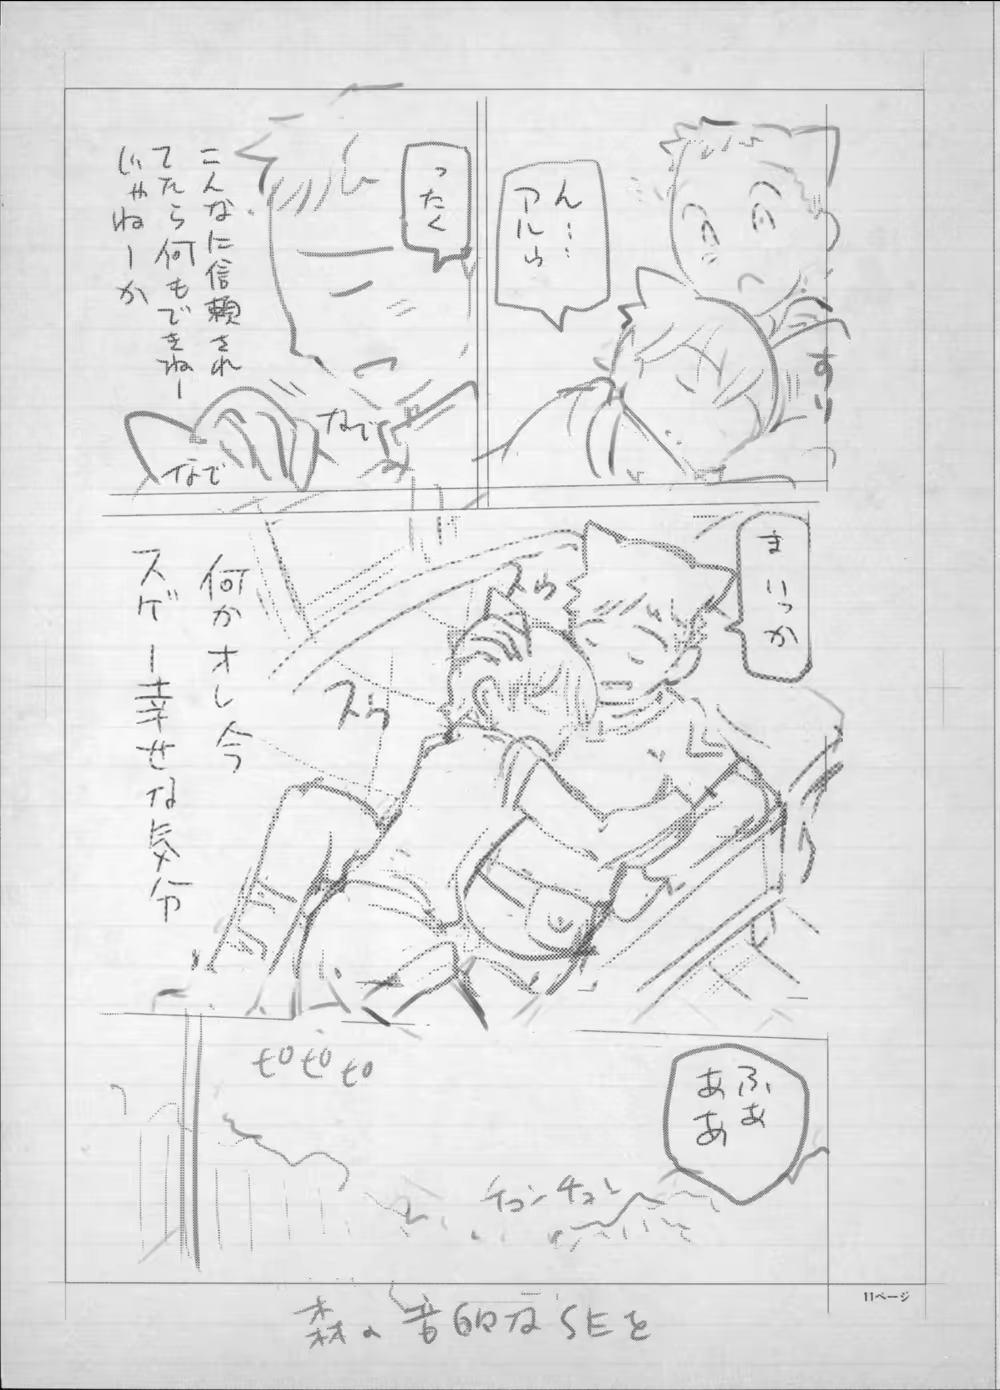 ん…
アルら
すり
ったく
こんなに信頼され
てたら何もできねー
じゃねーか
なで
なで
まいっか
スら
スら
何かオレ今
スゲー幸せな気分
ピピピ
ふぁ
ああ
チュンチュン
森の音的なSEを
11ページ